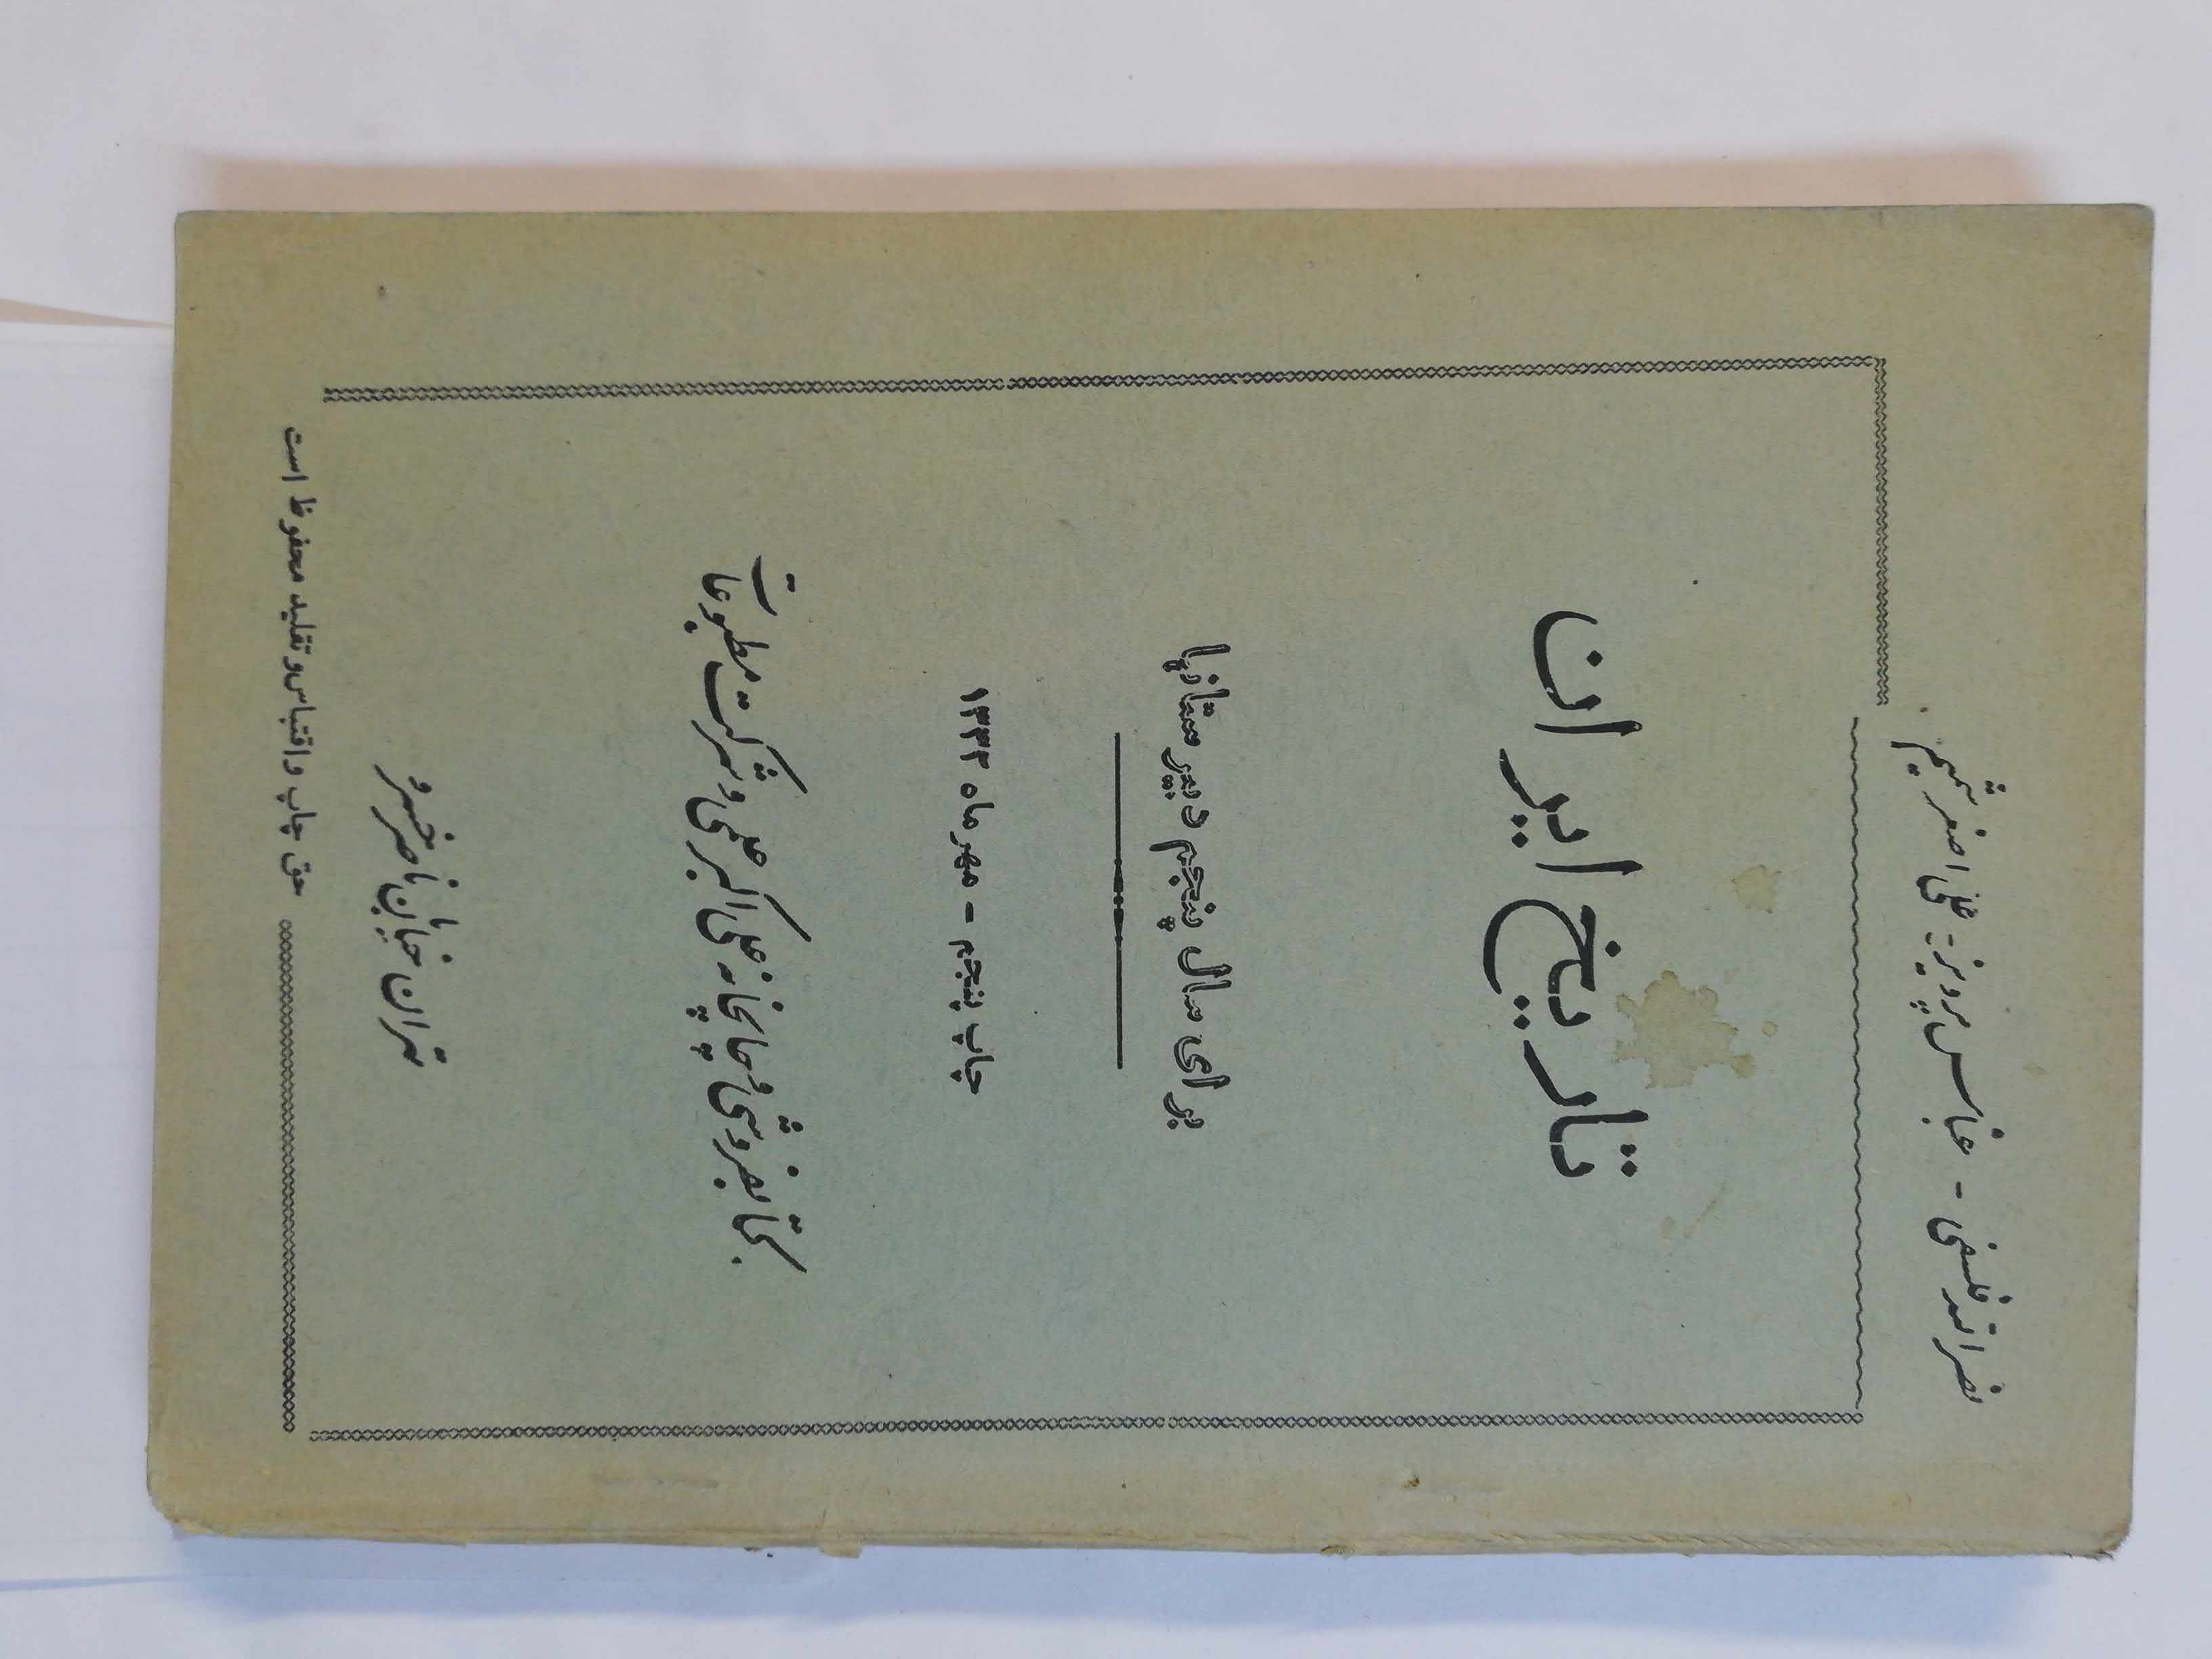 نصرالله فلسفی - عباس پرویز - علی اصغر شمیم
تاریخ ایران
برای سال پنجم دبیرستانها
چاپ پنجم - مهر ماه ۱۳۳۲
کتابفروشی و چاپخانه علی اکبر علمی و شرکت مطبوعات
تهران خیابان ناصرخسرو
حق چاپ و اقتباس و تقلید محفوظ است